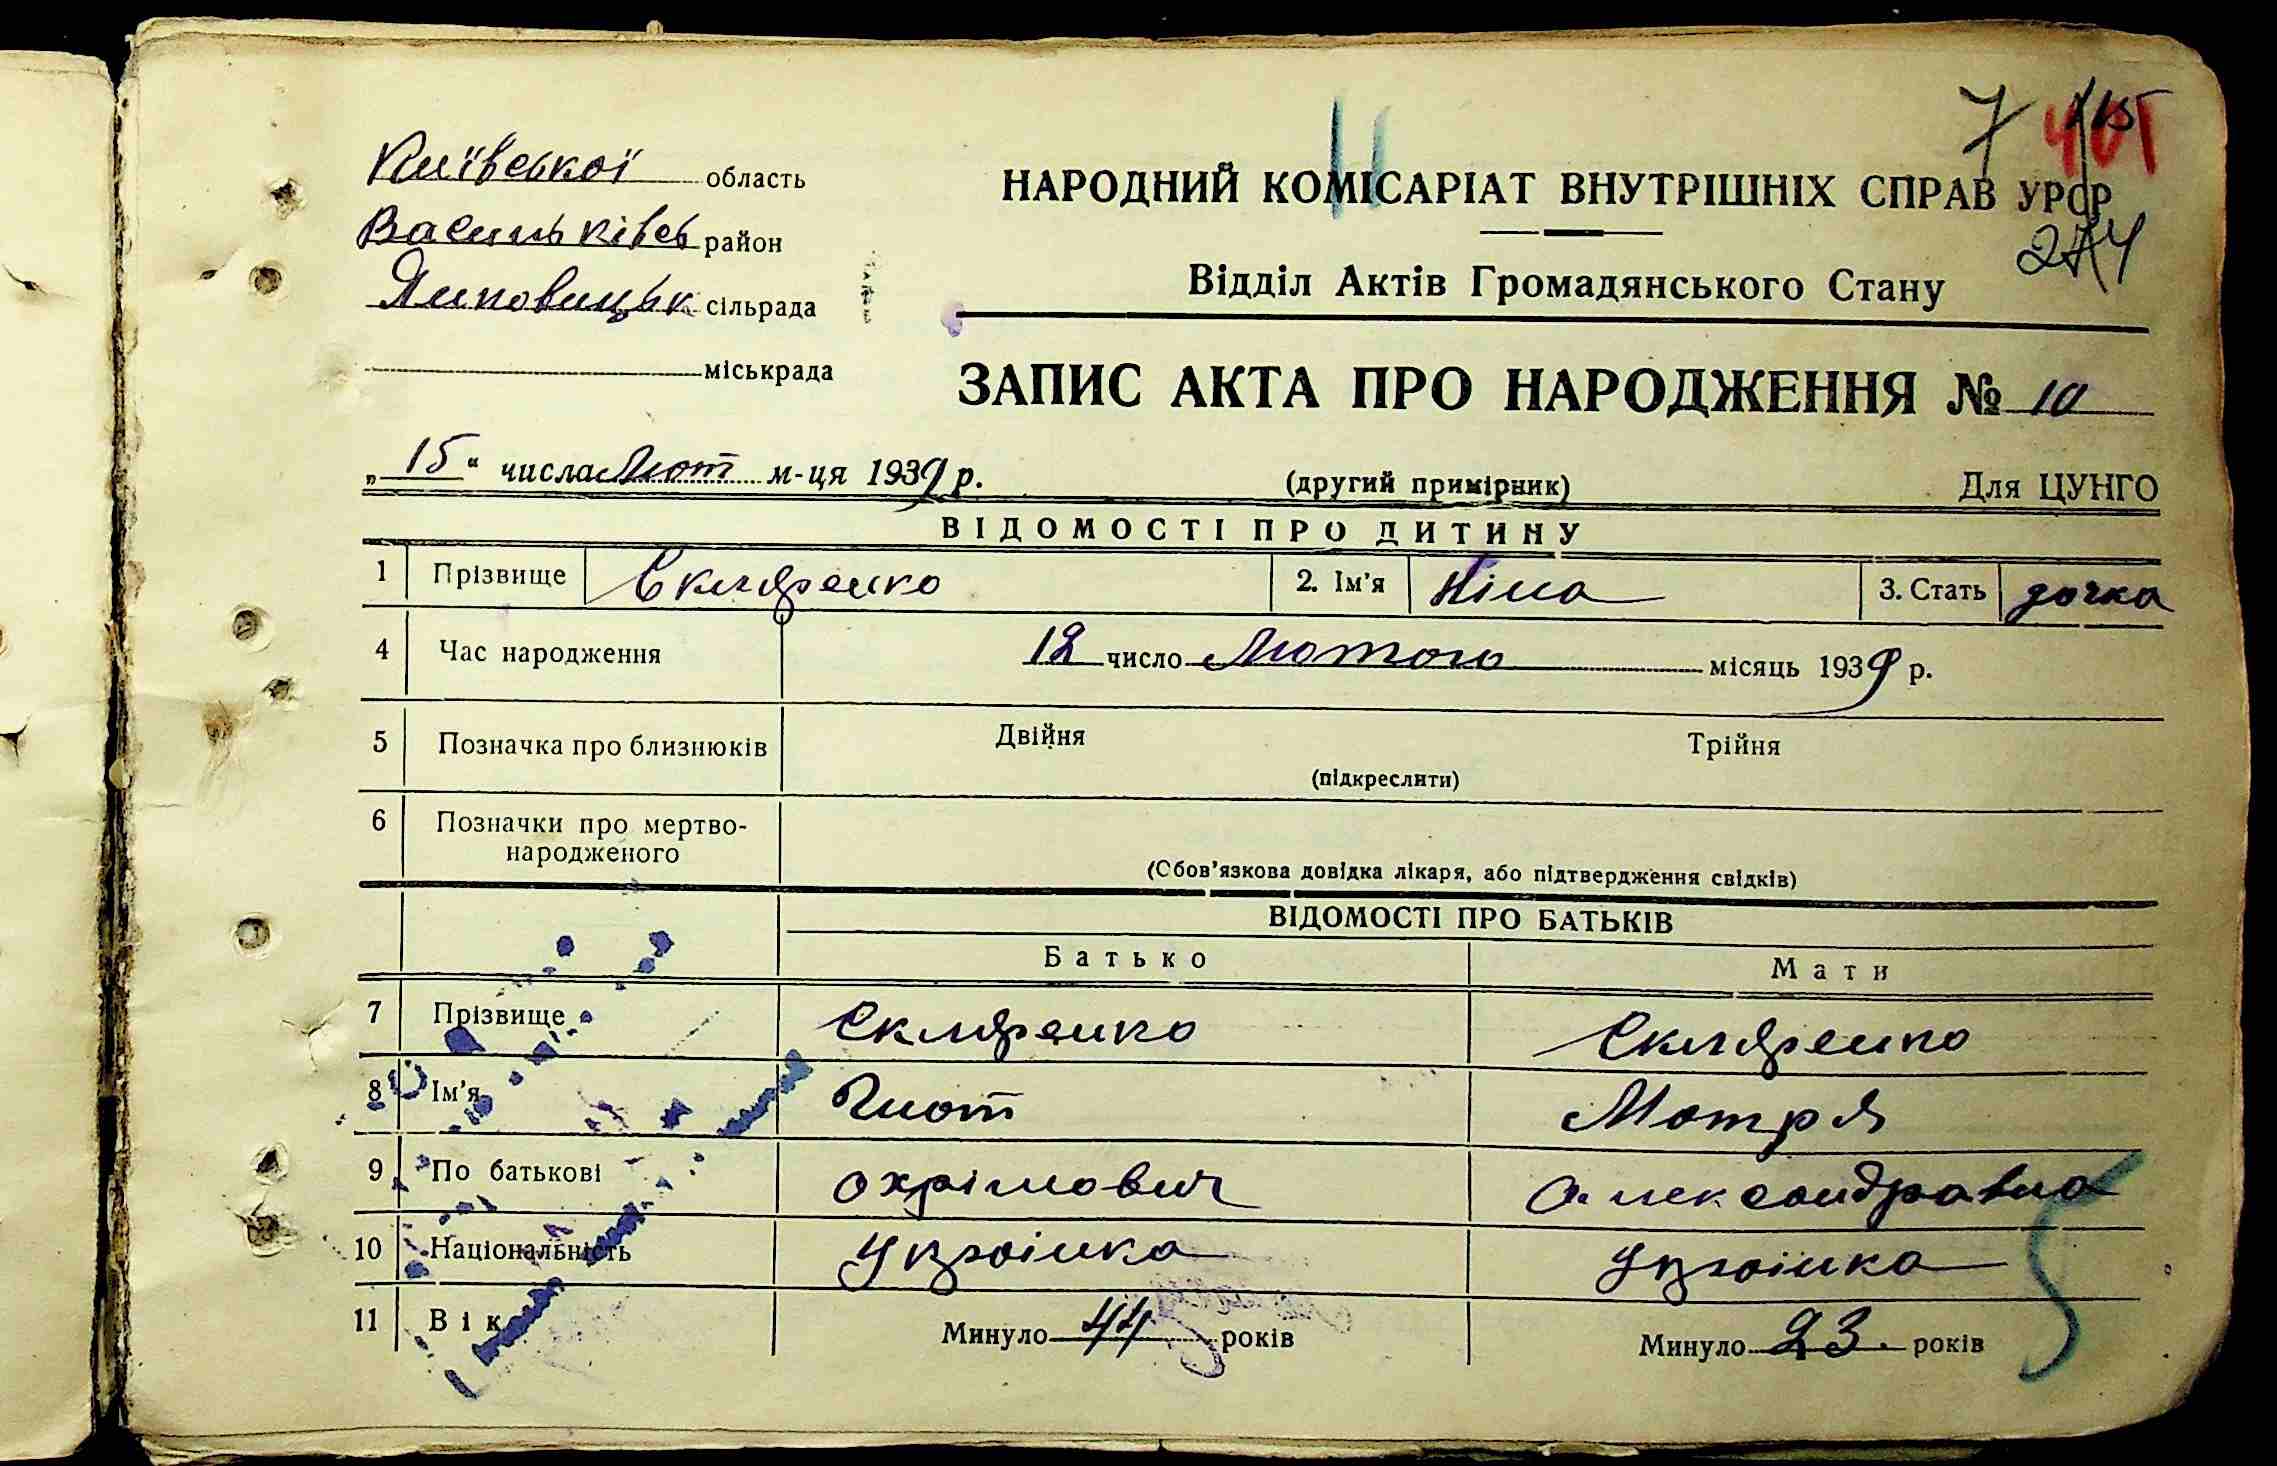 7 401
Київської область
НАРОДНИЙ КОМІСАРІАТ ВНУТРІШНІХ СПРАВ УРСР
Васильківсь район
Відділ Актів Громадянського Стану
сільрада
міськрада
ЗАПИС АКТА ПРО НАРОДЖЕННЯ № 10
„15“ числа Лют м-ця 1939 р. (другий примірник) Для ЦУНГО
ВІДОМОСТІ ПРО ДИТИНУ
1 Прізвище Скляренко 2. Ім'я Ніна 3. Стать дочка
4 Час народження 12 число Лютого місяць 1939 р.
5 Позначка про близнюків Двійня Трійня
(підкреслити)
6 Позначки про мертво-
народженого
(Обов'язкова довідка лікаря, або підтвердження свідків)
ВІДОМОСТІ ПРО БАТЬКІВ
Батько Мати
7 Прізвище Скляренко Скляренко
8 Ім'я Гнот Мотря
9 По батькові Охрімович Олександравна
10 Національність Українка Українка
11 Вік Минуло 44 років Минуло 23 років